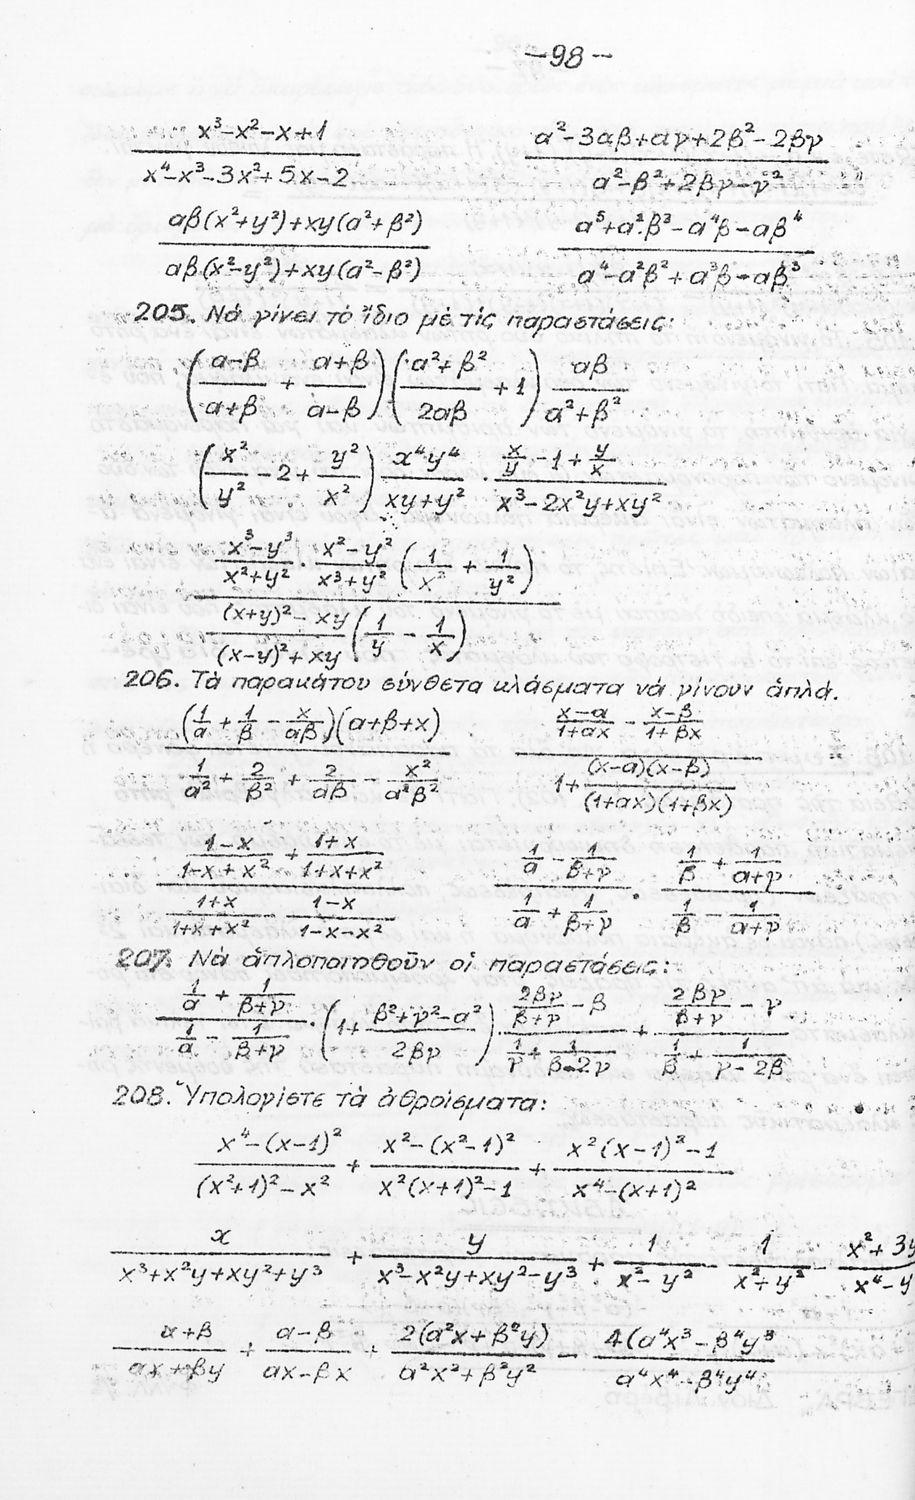 -98-
x³-x²-x+1 / x⁴-x³-3x²+5x-2    α²-3αβ+αγ+2β²-2βγ / α²-β²+2βγ-γ²
αβ(x²+y²)+xy(α²+β²) / αβ(x²-y²)+xy(α²-β²)    α⁵+α²β³-α⁴β-αβ⁴ / α⁴-α²β²+α³β-αβ³
205. Νά γίνει τό ἴδιο μέ τίς παραστάσεις:
((α-β)/(α+β) + (α+β)/(α-β)) ((α²+β²)/2αβ + 1) αβ/(α²+β²)
(x²/y² - 2 + y²/x²) x⁴y⁴/(xy+y²) · (x/y - 1 + y/x)/(x³-2x²y+xy²)
(x³-y³)/(x²+y²) · (x²-y²)/(x³+y³) (1/x² + 1/y²) / ((x+y)²-xy)/((x-y)²+xy) (1/y - 1/x)
206. Τά παρακάτου σύνθετα κλάσματα νά γίνουν ἁπλά.
(1/α + 1/β - x/αβ)(α+β+x) / (1/α² + 2/β² + 2/αβ - x²/α²β²)    ((x-α)/(1+αx) - (x-β)/(1+βx)) / (1 + (x-α)(x-β)/(1+αx)(1+βx))
((1-x)/(1-x+x²) + (1+x)/(1+x+x²)) / ((1+x)/(1+x+x²) - (1-x)/(1-x-x²))    (1/α - 1/(β+γ)) / (1/α + 1/(β+γ)) · (1/β + 1/(α+γ)) / (1/β - 1/(α+γ))
207. Νά ἁπλοποιηθοῦν οἱ παραστάσεις:
(1/α + 1/(β+γ)) / (1/α - 1/(β+γ)) · (1 + (β²+γ²-α²)/2βγ) · (2βγ/(β+γ) - β) / (1/γ + 1/(β-2γ)) + (2βγ/(β+γ) - γ) / (1/β + 1/(γ-2β))
208. Ὑπολογίστε τά ἀθροίσματα:
(x⁴-(x-1)²) / ((x²+1)²-x²) + (x²-(x²-1)²) / (x²(x+1)²-1) + (x²(x-1)²-1) / (x⁴-(x+1)²)
x / (x³+x²y+xy²+y³) + y / (x³-x²y+xy²-y³) + 1 / (x²-y²) - 1 / (x²+y²) - (x²+3y / (x⁴-y
(α+β) / (αx+βy) + (α-β) / (αx-βx) + 2(α²x+β²y) / (α²x²+β²y²) - 4(α⁴x³-β⁴y³ / (α⁴x⁴-β⁴y⁴